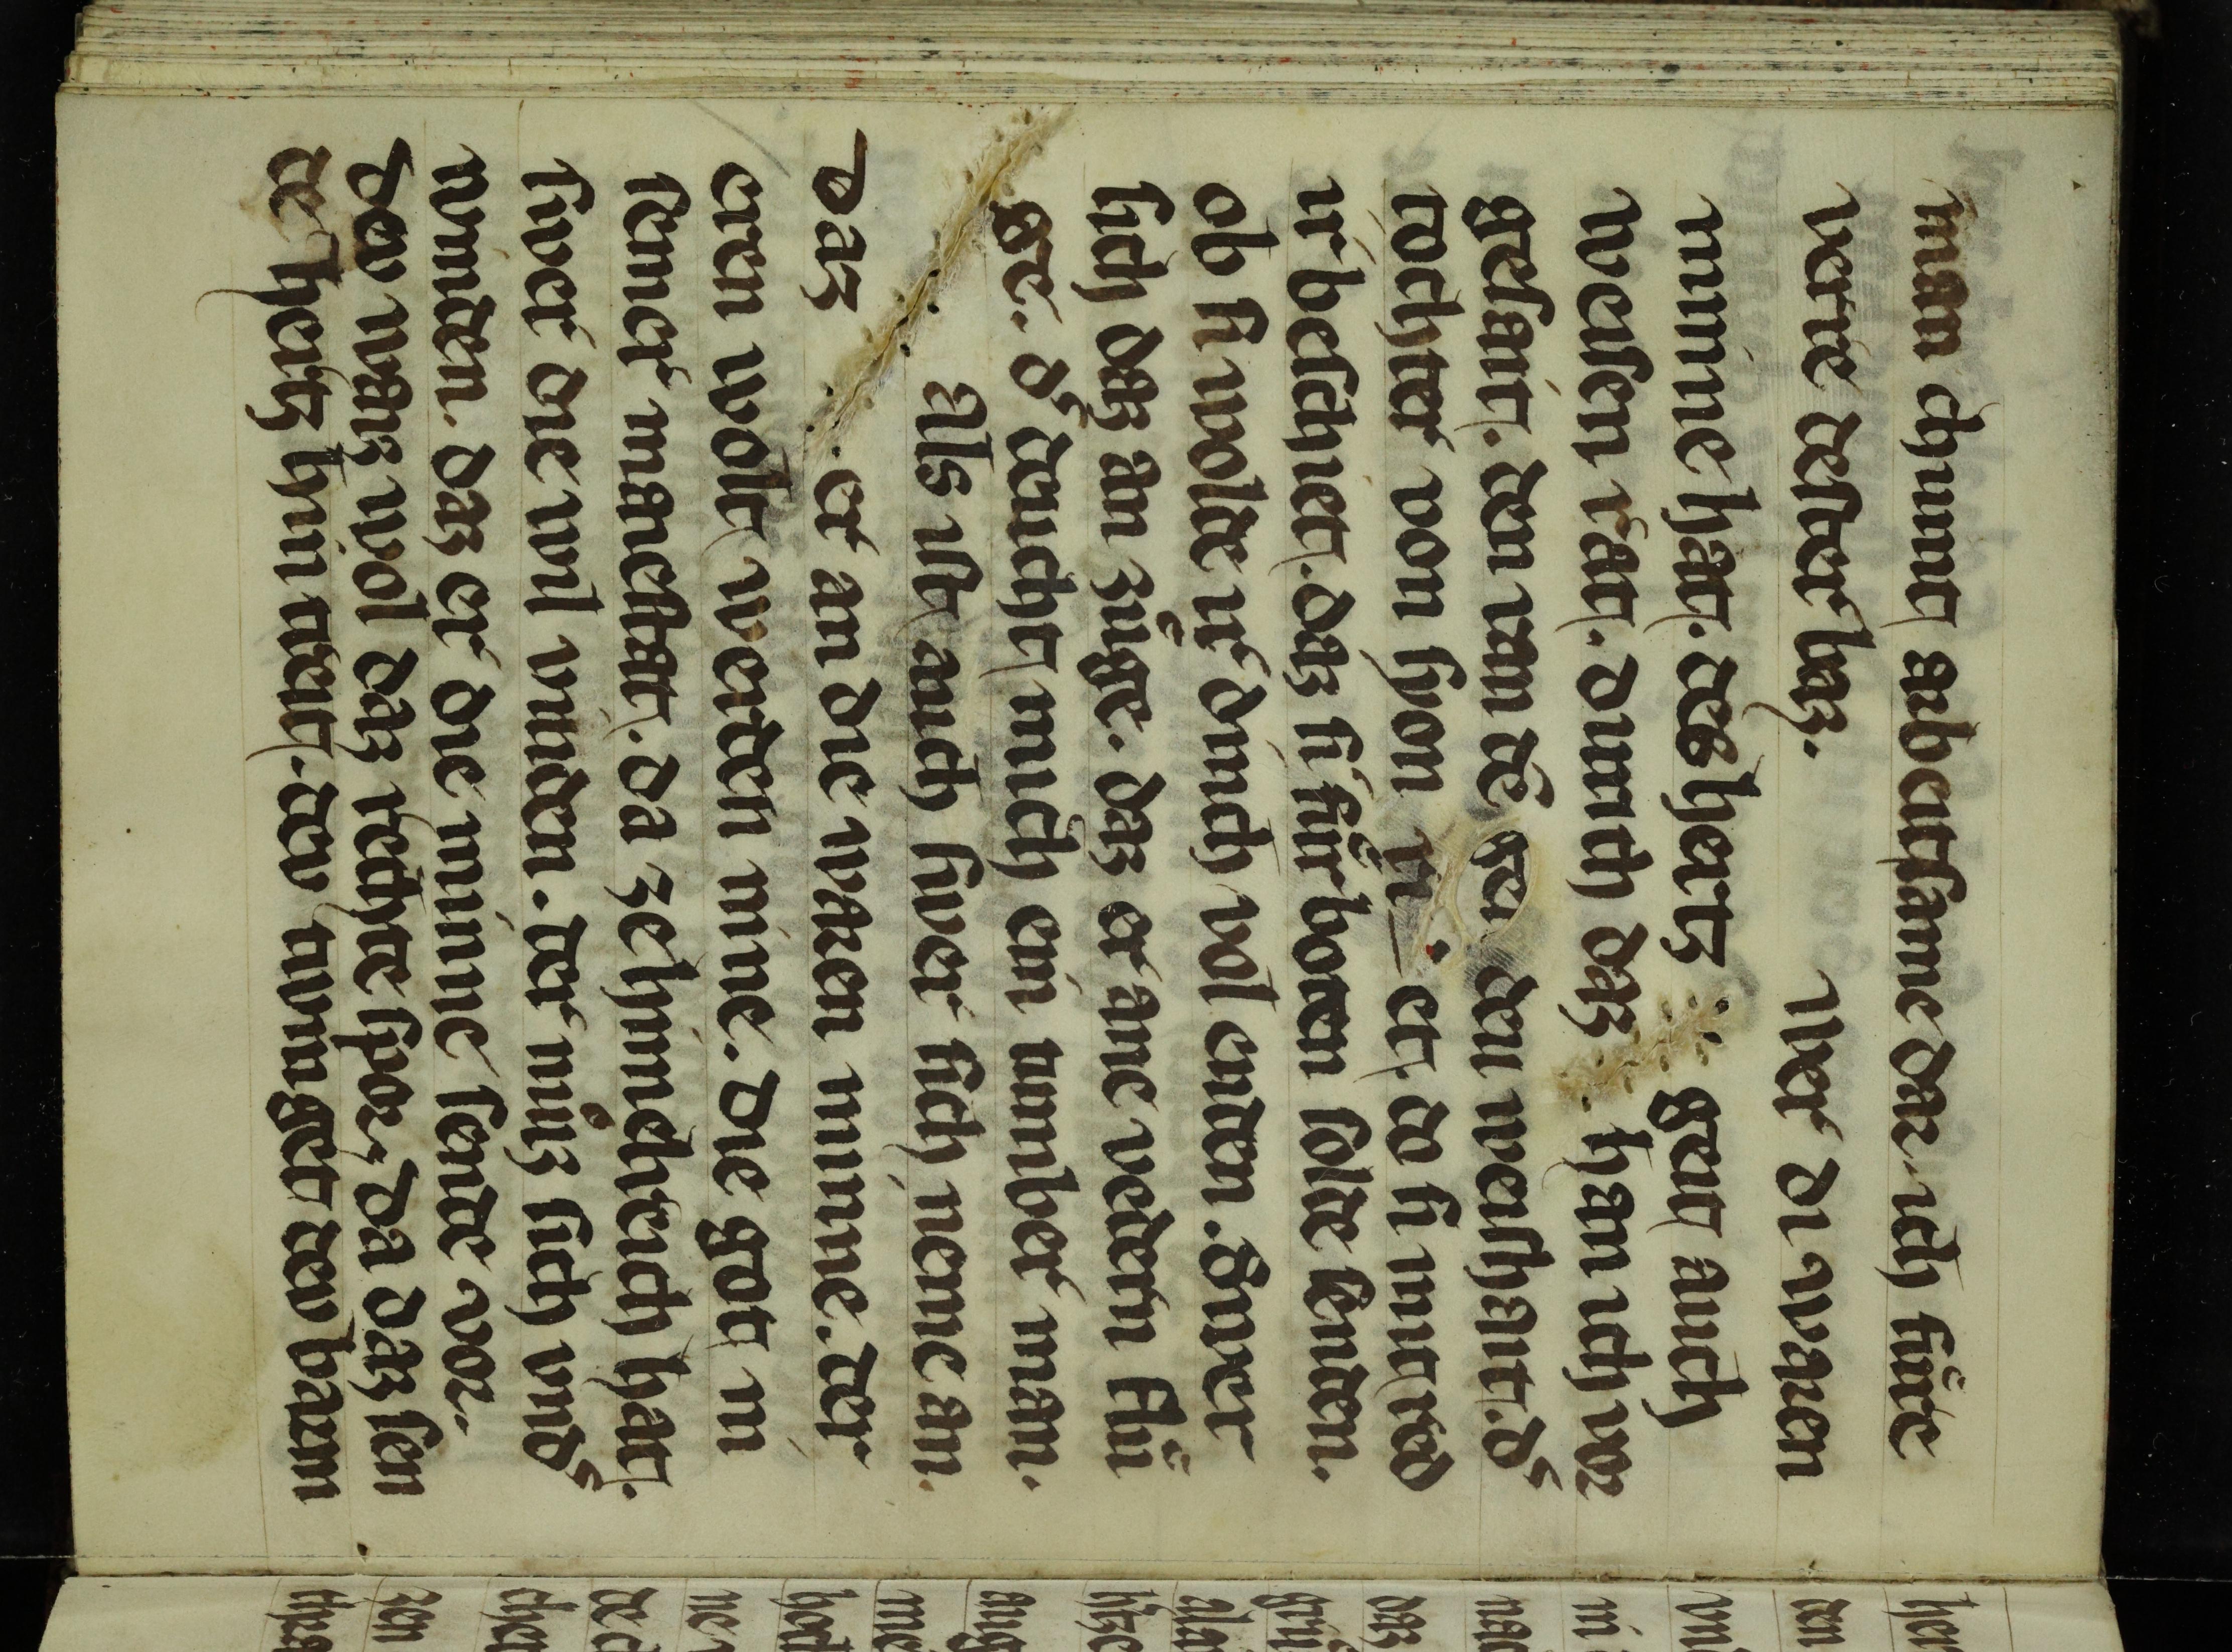 man chumt arbeitsame dar. ich fürte
verre dester baz. Wer di waren
minne hat. des hertz geit auch
weisen rat. durich daz han ich vor
gesait. den namē der weishait. d͛
tochter von syon ist er. do si mit red
ir beschiet. daz si fürbaen solte senten.
ob si wolte ir dinch wol enten. Swer
sich daz an züge. daz er ane vedern flü
ge. d͛ deucht mich ein tumber man.
Als ist auch swer sich neme an.
daz er an die waren minne. der
eren wolt werten inne. die got in
seiner maiestat. da ze himelreich hat.
swer die wil vinden. der müz sich vnd͛
winden. daz er die minne sente vor.
dev waiz wol daz rechte spor. da daz sein
de hertz hin treit. dev twinget dev barm